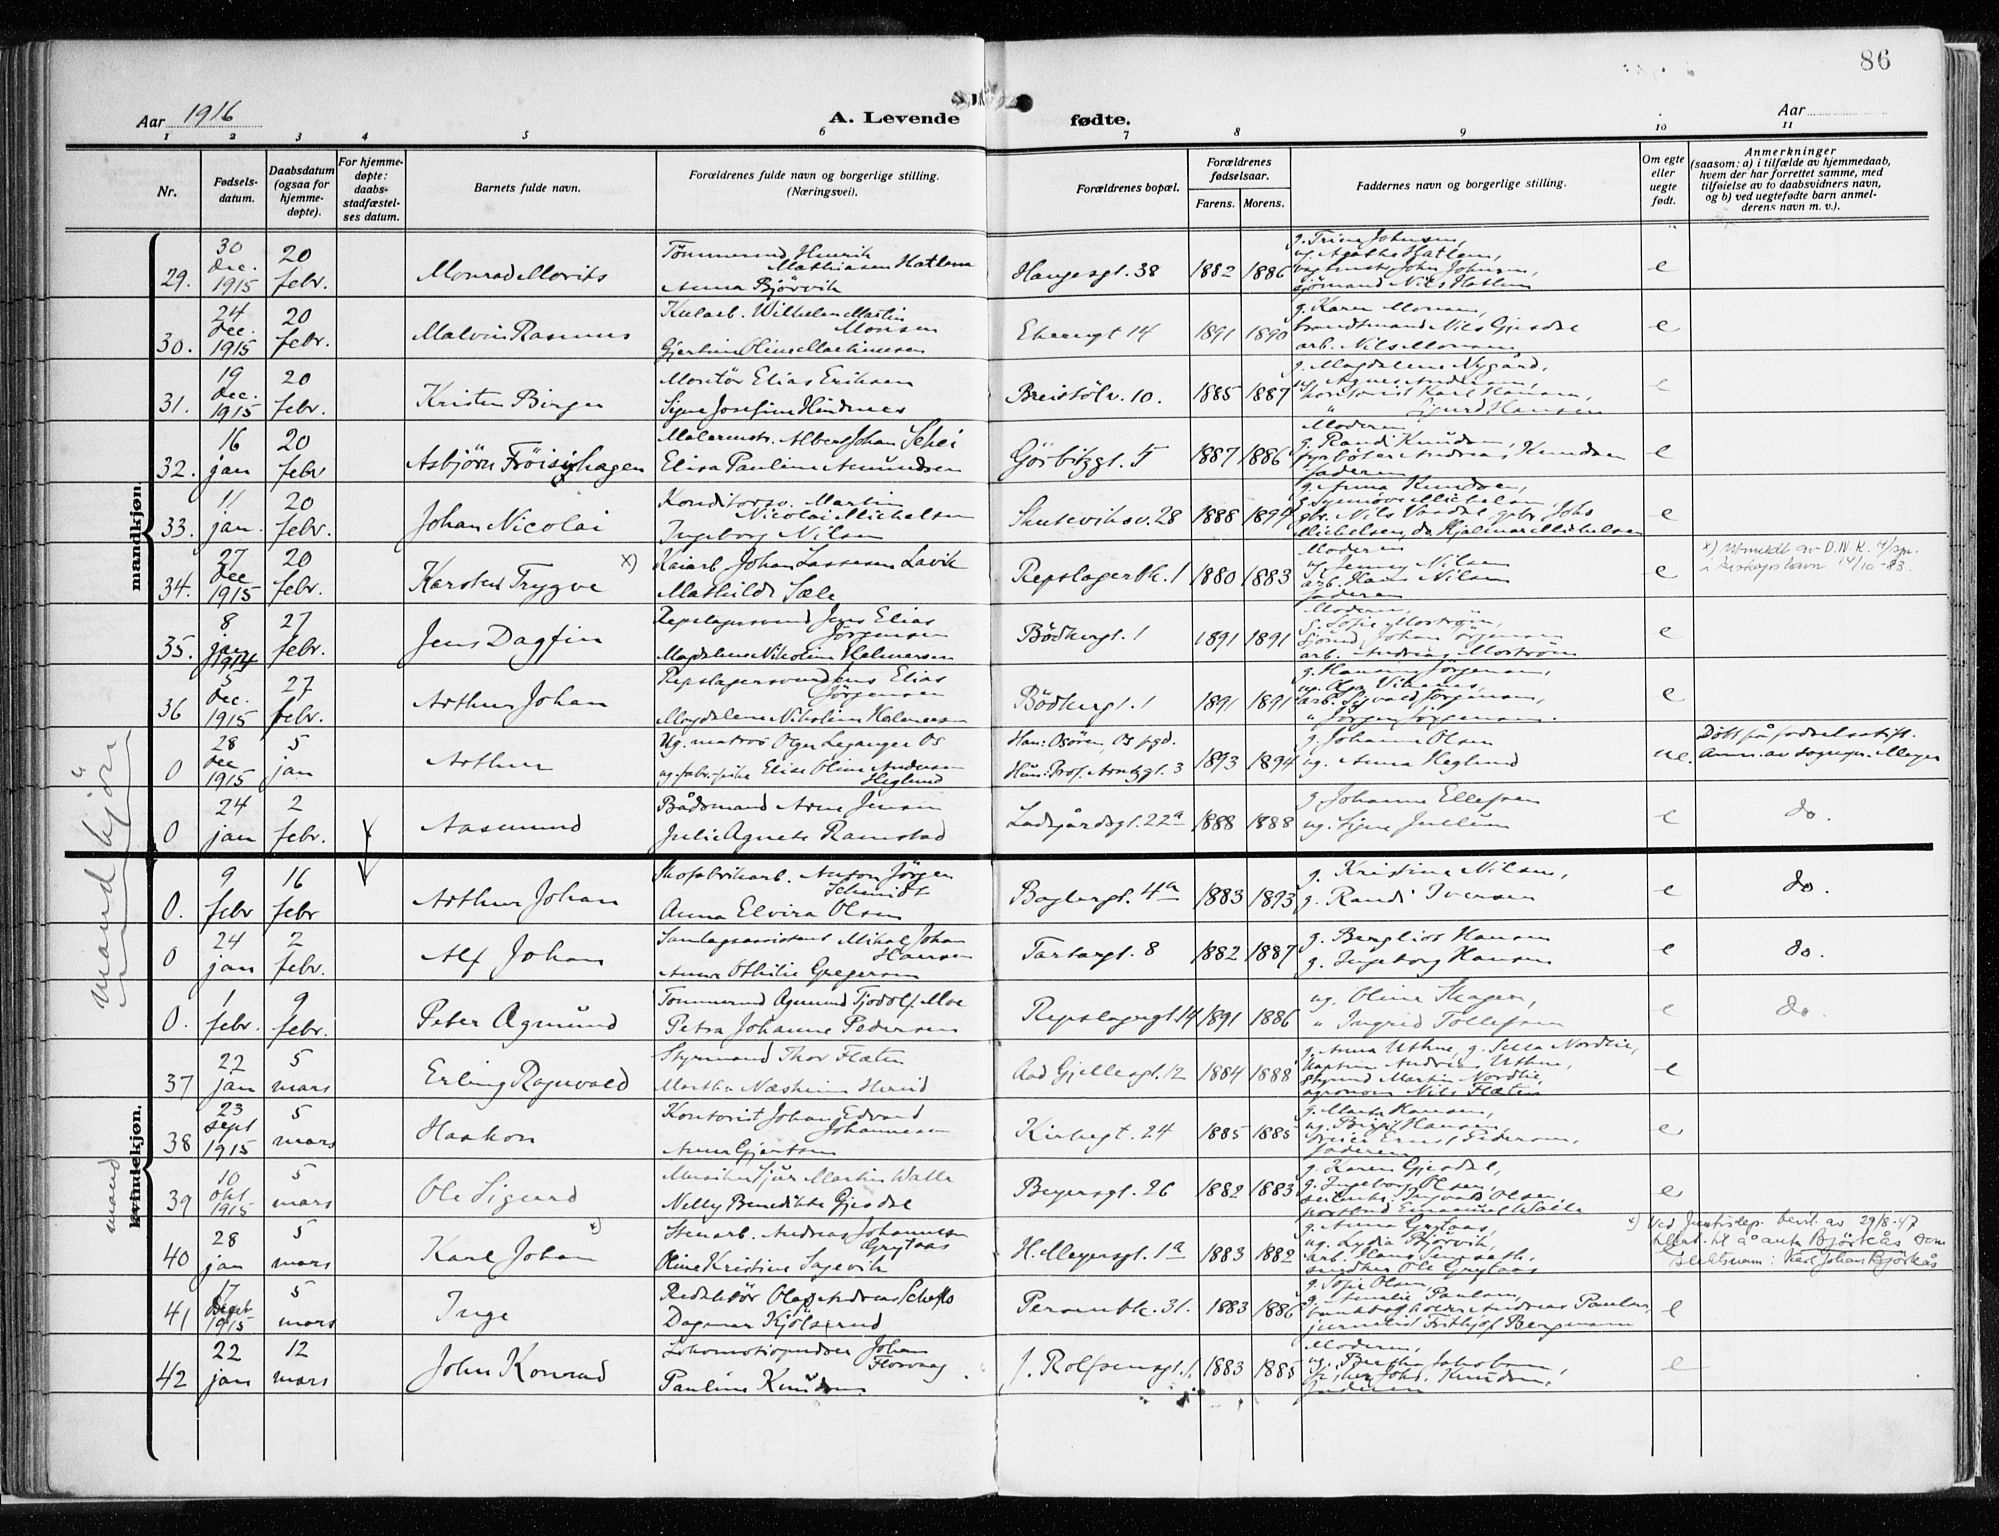 86
Aar 1916
A. Levende fødte.
Aar
1 2 3 4 5 6 7 8 9 10 11
Nr.
Fødsels-
datum.
Daabsdatum
(ogsaa for
hjemme-
døpte).
For hjemme-
døpte:
daabs-
stadfæstel-
ses datum.
Barnets fulde navn.
Forældrenes fulde navn og borgerlige stilling.
(Næringsvei).
Forældrenes bopæl.
Forældrenes
fødselsaar.
Farens. Morens.
Faddernes navn og borgerlige stilling.
Om egte
eller
uegte
født.
Anmerkninger
(saasom: a) i tilfælde av hjemmedaab,
hvem der har forrettet samme, med
tilføielse av to daabsvidners navn,
og b) ved uegtefødte barn anmel-
derens navn m. v.).
mandkjøn.
29. 30 dec. 1915 20 febr. Monrad Morits
Tömmermd Henrik
Mathiasen Hatlem
Anna Bjørvik
Haugesgt. 38 1882 1886
g. Trine Johnsen,
ug. Agathe Hatlem,
John Johnsen,
sjömand Nils Hatlem
e
30. 24 dec. 1915 20 febr. Malvin Rasmus
Kularb. Wilhelm Martin
Monsen
Gjertine Oline Martinussen
14 1891 1890
g. Karen Monsen,
Nils Gjesdal
arb. Nils Monsen
e
31. 19 dec. 1915 20 febr. Kristen Birger
Montör Elias Eriksen
Signe Josefine Hindnes
Breistölv. 10. 1885 1887
g. Magdalene Nygård,
ug. Agnes Andersen,
kontorist Karl Hansen,
" Sigurd Hansen
e
32. 16 jan 20 febr Asbjörn Fröisghagen
Malermstr. Albert Johan
Elisa Pauline Amundsen
Görbitzgt. 5 1887 1886
Moderen,
g. Randi Knudsen,
fyrböter Andreas Knudsen
faderen
e
33. 11 jan. 20 febr. Johan Nicolai
Konditorsv. Martin
Nicolai Michelsen
Ingeborg Nilsen
Skuteviksv. 28 1888 1894
g. Anna Knudsen,
g. Synnöve Michelsen,
Nils Vaadal, Johs
Michelsen, do Hjalmar Michelsen
e
34. 27 dec 1915 20 febr. Karsten Trygve x)
Kaiarb Johan Lassesen Lavik
Mathilde Sæle
Repslagerbk. 1 1880 1883
Moderen
ug. Jenny Nilsen
arb. Hans Nilsen
faderen
e
x) Utmeldt av D.N.K.
14/10-83.
35. 8 jan 1914 27 febr. Jens Dagfin
Repslagersvend Jens Elias
Jörgensen
Magdalene Nikoline Helmersen
Bödkergt. 1 1891 1891
Moderen,
g. Sofie Moström,
sjömd. Johan Jörgensen
arb. Andreas Moström
e
36 5 dec. 1915 27 febr. Arthur Johan
Repslagersvend Jens Elias
Jörgensen
Magdalene Nikoline Helmersen
Bödkergt. 1 1891 1891
g. Hansine Jörgensen,
ug. Olga Vikenes,
arb. Sigvald Jörgensen,
" Jörgen Jörgensen.
e
mandkjön
0 28 dec 1915 5 jan Arthur
Ug. matros Olger Leganger Os
ug. fabr. pike Elise Oline Andersen
Heglund
Han: Osören, Os pgd.
Hun: Prof. Arntzgt. 3
1893 1894
g. Johanne Olsen
ug. Anna Heglund
ue.
Döbt på fødselsstift.
Anm. av sognepr. Meyer
0 24 jan 2 febr. Aasmund
Bådsmand Arne Jensen
Julie Agnete Ramstad
Ladegårdsgt. 22a 1888 1888
g. Johanne Ellefsen
ug. Signe Jullum
e do.
0. 9 febr 16 febr Arthur Johan
Skofabrikarb. Anton Jörgen
Schmidt
Anna Elvira Olsen
Baglergt. 4a 1883 1893
g. Kristine Nilsen,
g. Randi Iversen
e do.
0 24 jan 2 febr. Alf Johan
Samlagsassistent Mikal Johan
Hansen
Anna Othilie Gregersen
Tartargt. 8 1882 1887
g. Bergliot Hansen
g. Ingeborg Hansen
e do.
0. 1 febr. 9 febr. Peter Agmund
Tömmermd Agmund Tjodolf Moe
Petra Johanne Pedersen
Repslagergt. 14 1891 1886
ug. Oline Skagen,
" Ingrid Tollefsen
e do.
37 22 jan 5 mars Erling Ragnvald
Styrmand Thor Flæten
Martha Næsheim
Aad Gjellesgt. 12 1884 1888
g. Anna Uthne, g. Silla Nordlie,
kaptein Andreas Uthne,
styrmd Martin Nordlie,
agronom Nils Flæten
e
kvindekjøn.
mand
38 23 sept 1915 5 mars Haakon
Kontorist Johan Edvard
Johannesen
Anna Gjertsen
Kirkegt. 24 1885 1885
g. Marta Hansen,
ug. Birgit Hansen,
Ernst Pedersen,
faderen
e
39 10 okt 1915 5 mars Ole Sigurd
Musiker Sjur Martin Walle
Nelly Benedikte Gjesdal
Beyersgt. 26 1882 1883
g. Karen Gjesdal,
g. Ingeborg Olsen,
Ingvald Olsen,
Emanuel Walle
e
40 28 jan 5 mars Karl Johan x)
Stenarb. Andreas Johannesen
Grytaas
Oline Kristine Sagevik
H. Meyersgt. 1a 1883 1882
g. Anna Grytaas,
ug. Lydia Bjørvik,
arb. Hans
snedker Ole Grytaas
e
x) Ved Justisdep. bevl. av 29/8-47
till. til å anta Björkås som
slektsnavn: Karl Johan Björkås
41 17 sept 1915 5 mars Inge
Redaktör Olaf Andreas Scheflo
Dagmar Kjölserud
Perambk. 31. 1883 1886
g. Sofie Olsen,
g. Amalie Paulsen,
Andreas Paulsen,
journalist Frithjof Bergmann
e
42 22 jan 12 mars John Konrad
Lokomotivpudser Johan
Florvaag
Pauline Knudsen
J. Rolfsensgt. 1 1883 1885
Moderen,
ug. Bertha Jakobsen,
Johs. Knudsen,
faderen
e